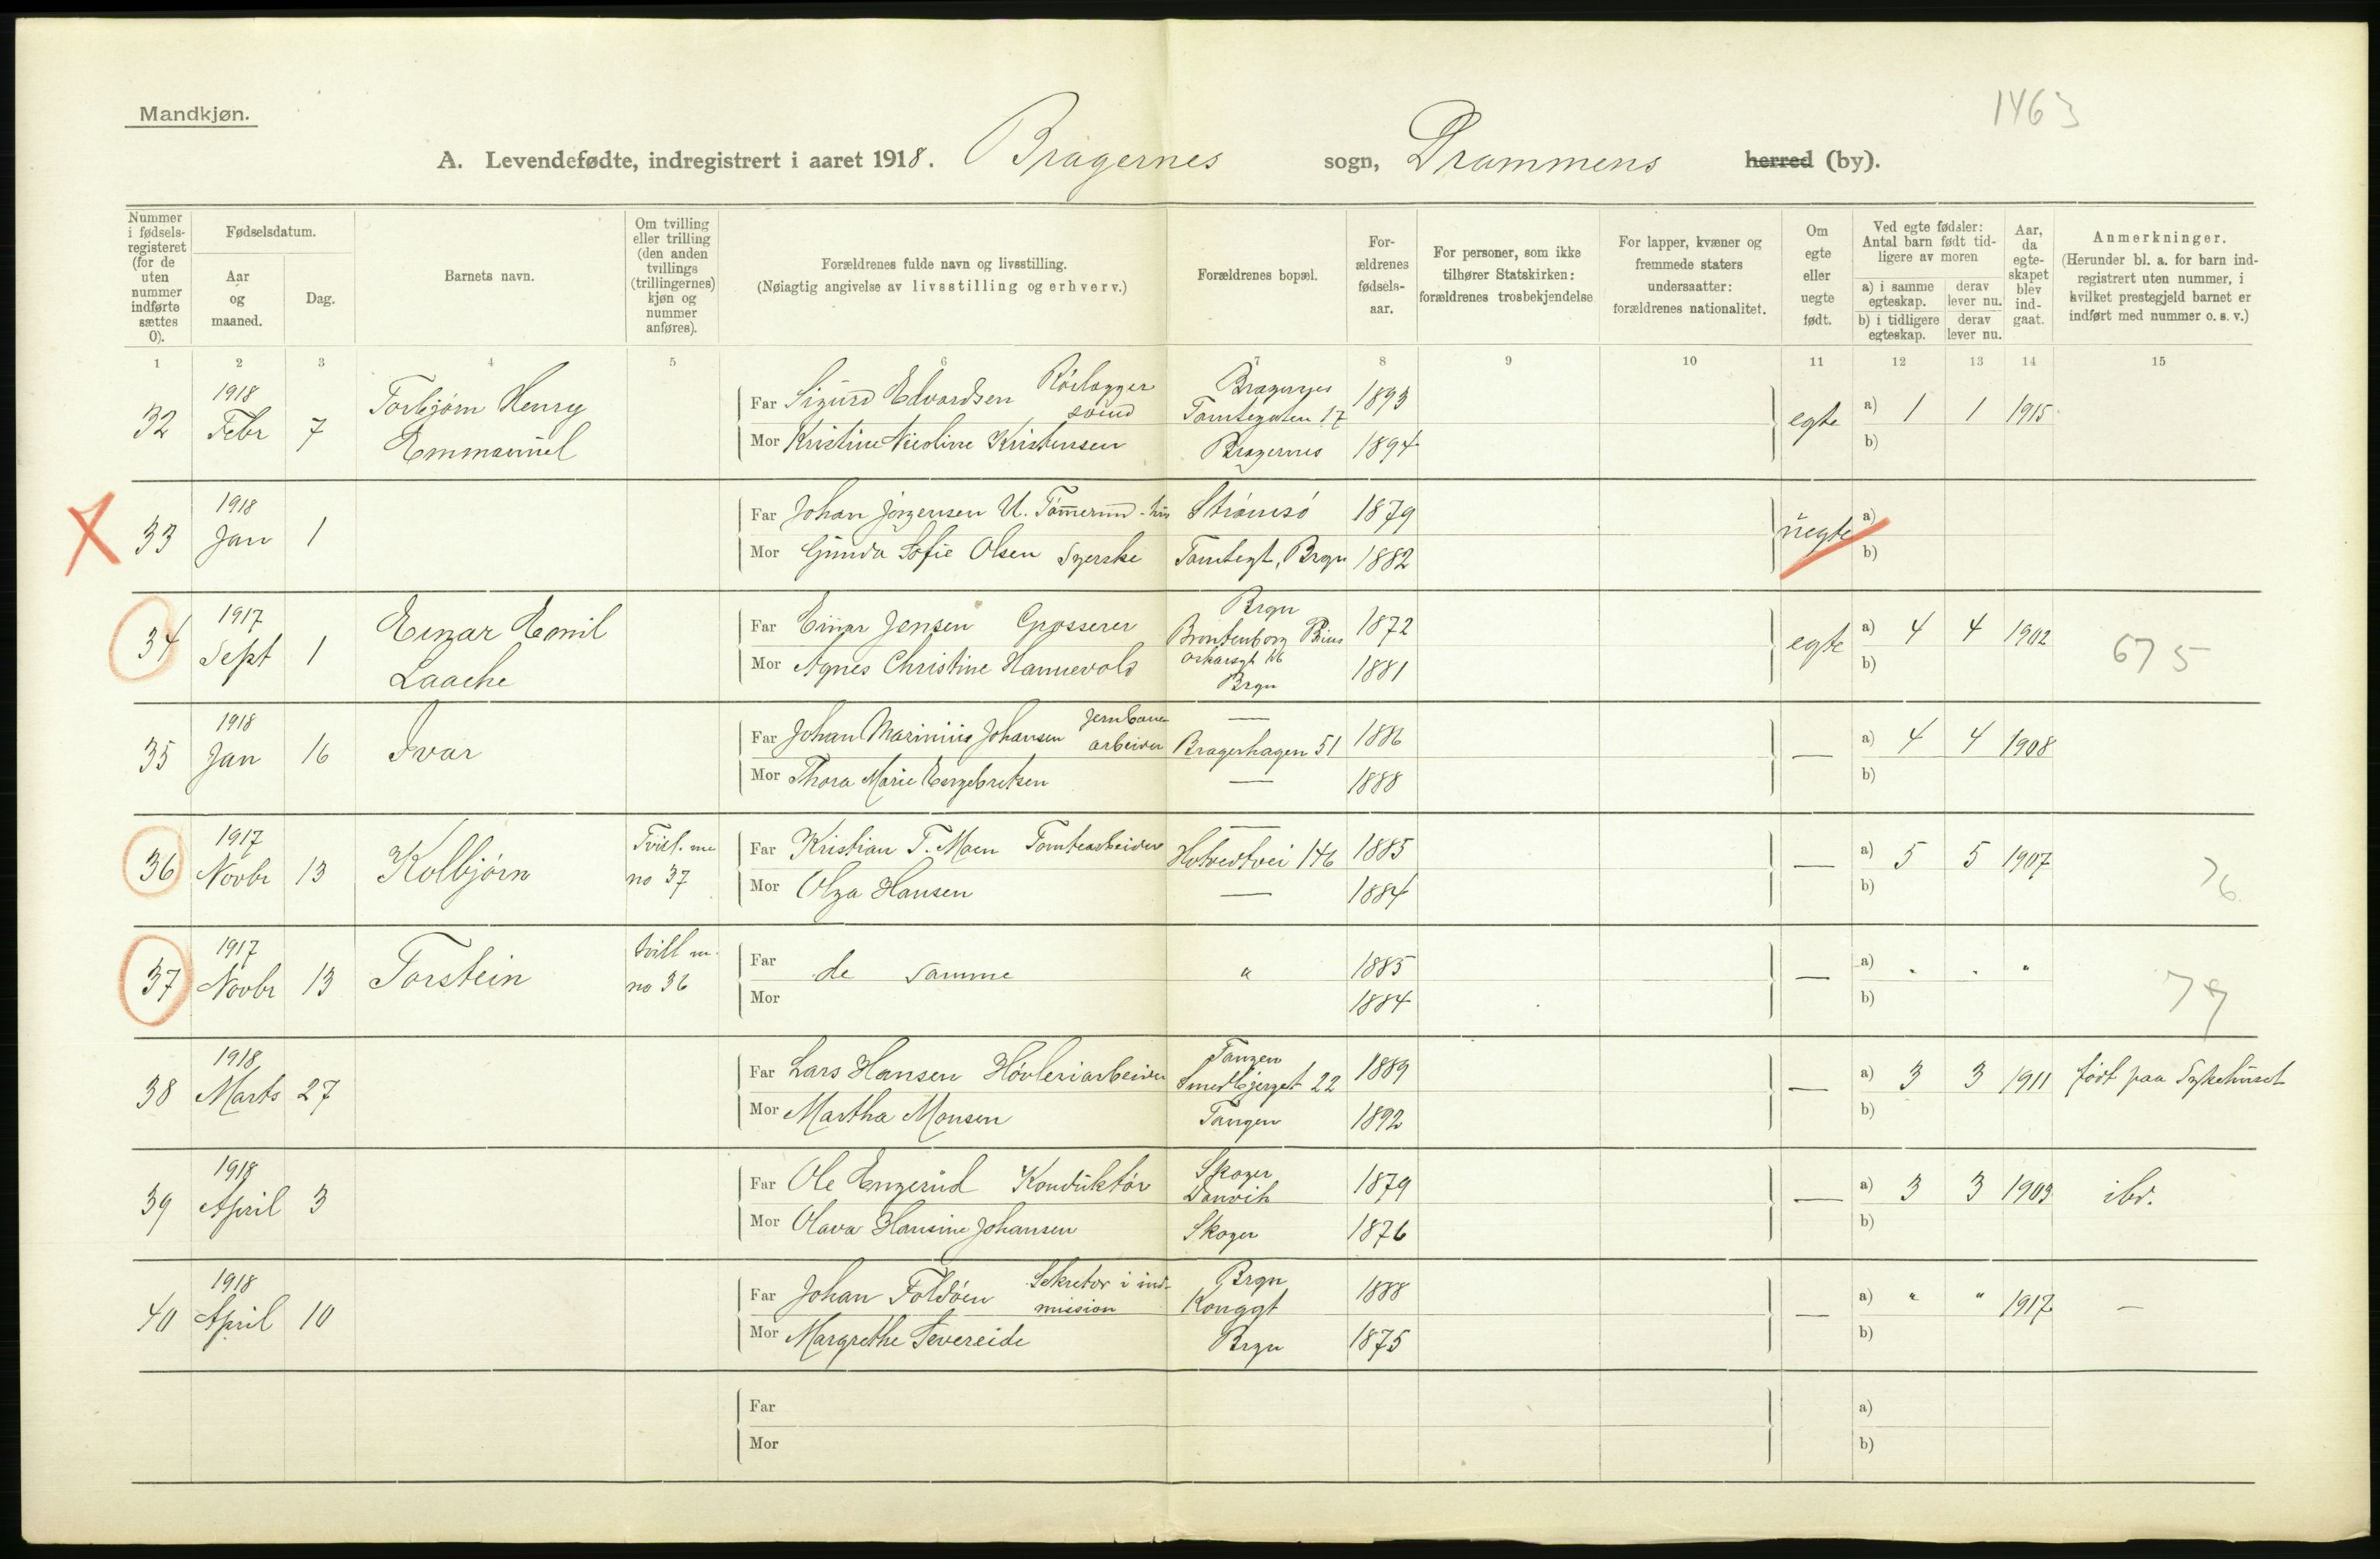 Mandkjøn.
1463
A. Levendefødte, indregistrert i aaret 1918. Bragernes sogn, Drammens herred (by).
Nummer i fødselsregisteret (for de uten nummer indførte sættes 0).
Fødselsdatum.
Aar og maaned.
Dag.
Barnets navn.
Om tvilling eller trilling (den anden tvillings (trillingernes) kjøn og nummer anføres).
Forældrenes fulde navn og livsstilling.
(Nøiagtig angivelse av livsstilling og erhverv.)
Forældrenes bopæl.
Forældrenes fødselsaar.
For personer, som ikke tilhører Statskirken: forældrenes trosbekjendelse
For lapper, kvæner og fremmede staters undersaatter: forældrenes nationalitet.
Om egte eller uegte født.
Ved egte fødsler: Antal barn født tidligere av moren
a) i samme egteskap.
derav lever nu.
b) i tidligere egteskap.
derav lever nu.
Aar, da egteskapet blev indgaat.
Anmerkninger.
(Herunder bl. a. for barn indregistrert uten nummer, i hvilket prestegjeld barnet er indført med nummer o. s. v.)
1 2 3 4 5 6 7 8 9 10 11 12 13 14 15
32 1918 Febr 7 Torbjørn Henry Emmanuel
Far Sigurd Edvardsen Rørlægger svend Bragernes Tomtegaten 17 1893
Mor Kristine Nicoline Kristensen Bragernes 1894
egte a) 1 1 1915
b)
33 1918 Jan 1
Far Johan Jørgensen U. Strømsø 1879
Mor Gunda Sofie Olsen Syerske Tomtegt, Brgn 1882
uegte a)
b)
34 1917 Sept 1 Einar Emil Laache
Far Einar Jensen Grosserer Brgn 1872
Mor Agnes Christine Hannevold Brgn 1881
egte a) 4 4 1902 675
b)
35 1918 Jan 16 Ivar
Far Johan Marinius Johansen Jernbane arbeider — Bragerhagen 51 1886
Mor Thora Marie Engebretsen — 1888
— a) 4 4 1908
b)
36 1917 Novbr 13 Kolbjørn Tvill. m no 37
Far Kristian T. Moen Tomtearbeider — Hotvedtvei 146 1885
Mor Olga Hansen — 1884
— a) 5 5 1907 76
b)
37 1917 Novbr 13 Torstein tvill m. no 36
Far de samme " 1885
Mor 1884
— a) " " " 77
b)
38 1918 Marts 27
Far Lars Hansen Høvleriarbeider Tangen Smedbjergat 22 1889
Mor Martha Monsen Tangen 1892
— a) 3 3 1911 født paa Sykehuset
b)
39 1918 April 3
Far Ole Engerud Konduktør Skoger Danvik 1879
Mor Olava Hansine Johansen Skoger 1876
— a) 3 3 1903 ibd.
b)
40 1918 April 10
Far Johan Foldøen Sekretær i ind- mission Brgn Konggt 1888
Mor Margrethe Tevereide Brgn 1875
— a) " " 1917 —
b)
Far a)
Mor b)